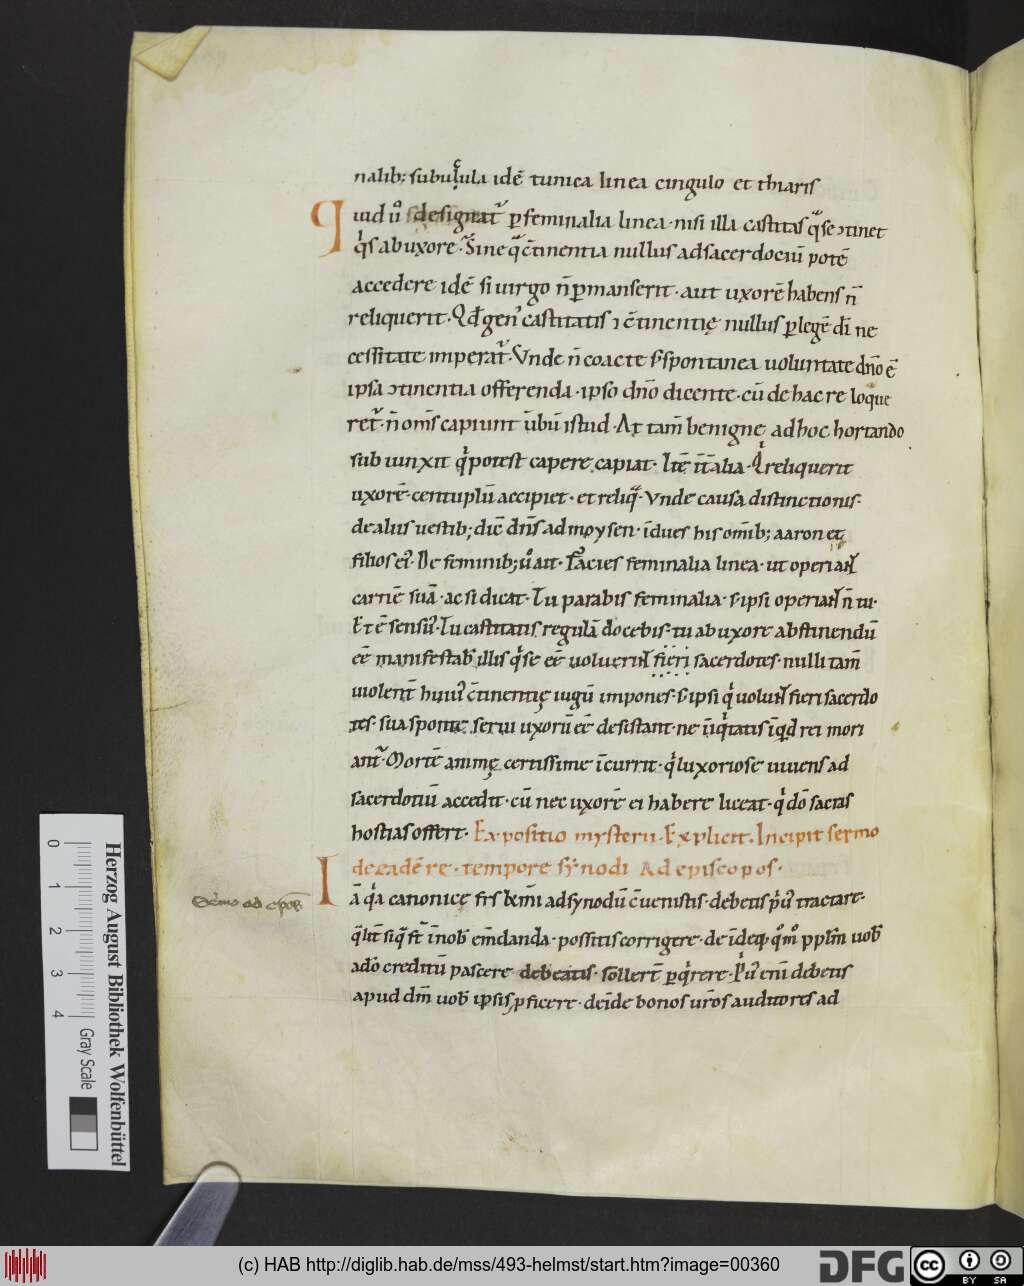 nalib; subucula idē tunica linea cingulo et thiaris
Quid ů designat᷑ ꝑ feminalia linea · nisi illa castitas qͣ se ↄtinet
qͥs ab uxore · Sine qͣ ↄ̄tinentia nullus ad sacerdociū potē
accedere idē si uirgo n̄ ꝑmanserit · aut uxorē habens n̄
reliquerit · Qđ gen᷒ castitatis ⁊ ↄ̄tinentię nullus ꝑ legē dī ne
cessitate imperat᷑ · Vnde n̄ coacte s; spontanea uoluntate dn̄o ē
ipsa ↄtinentia offerenda · ipso dn̄o dicente · cū de hac re loque
ret᷑ · n̄ om̄s capiunt ūbū istud · At tam̄ benigne ad hoc hortando
subiunxit qͥ potest capere capiat · Itē īt alia · Qͥ reliquerit
uxorē · centuplū accipiet · et reliqͣ · Vnde causa distinctionis ·
de aliis uestib; dic̄ dn̄s ad moysen · īdues his om̄ib; aaron et
filios ei᷒ · De feminib; ů ait · Facies feminalia linea · ut operiant
carnē suā · ac si dicat · Tu parabis feminalia · s; ipsi operiant n̄ tu ·
Et ē sensus · Tu castitatis regulā docebis · tu ab uxore abstinendū
eē manifestab᷒ illis qͥ se eē uoluerint fieri sacerdotes · nulli tam̄
uiolent̄ hui᷒ ↄ̄tinentię iugū impones · s; ipsi qͥ uolunt fieri sacerdo
tes · sua sponte serui uxorū eē desistant · ne
ant᷑ · Mortē animę certissime īcurrit · qͥ luxoriose uiuens ad
sacerdotiū accedit · cū nec uxorē ei habere liceat · qͥ dō sacras
hostias offert · Expositio mysterii · Explicit · Incipit sermo
de eadē re · tempore synodi Ad episcopos ·
Iā qͥa canonice frs kr̄mi ad synodū ↄ̄uenistis · debetis pͥ᷒ tractare ·
īnob̄ em̄danda · possitis corrigere · deīdeq; qͦmͦ pplm̄ uob̄
a dō creditū pascere debeatis · sollert̄ ꝑqͥrere · Pͥ᷒ eni debetis
apud dm̄ uob̄ ipsis ꝓficere · deīde bonos ur̄os auditores ad
Sermo ad ep̄os
Herzog August Bibliothek Wolfenbüttel
Gray Scale
0 1 2 3 4
(c) HAB http://diglib.hab.de/mss/493-helmst/start.htm?image=00360
DFG
cc BY SA